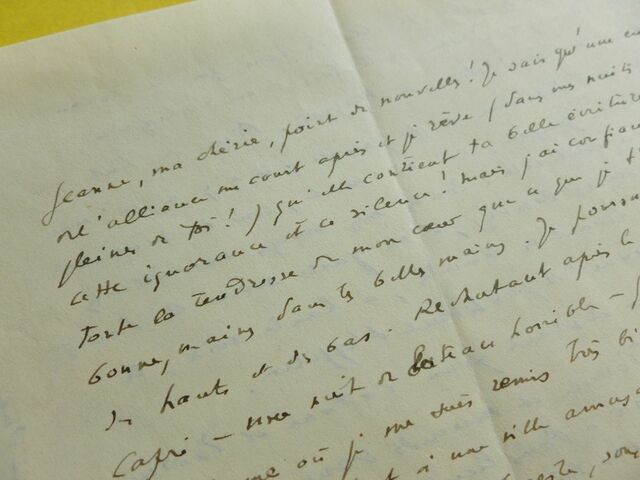 Jeanne, ma chérie, point de nouvelles! Je sais qu'une
de l'alliance me court après et je rêve (dans mes nuits
pleines de toi!) qu'elle contient ta belle écriture
cette ignorance et ce silence! mais j'ai confian
toute la tendresse de mon cœur que ce que je
bonne, mains dans tes belles mains. Je poursui
de hauts et des bas. Rechutant après le
Capri – une nuit de bateau horrible –
où je me suis remis très bi
une ville amusa